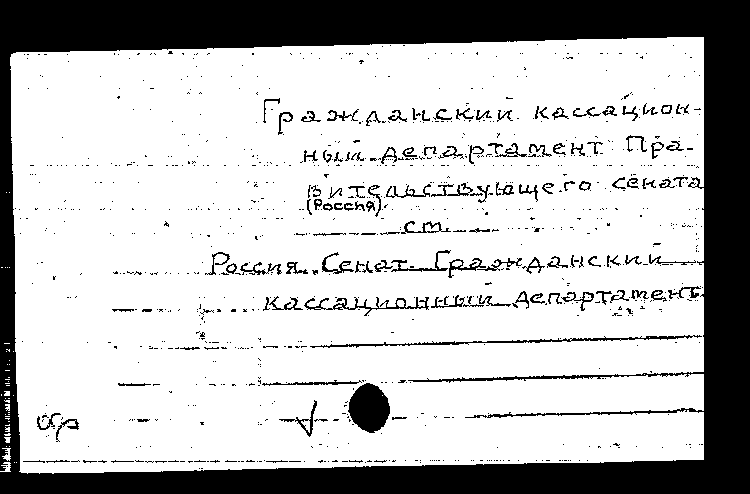 Гражданский кассацион-
ный департамент Пра-
вительствующего сената
(Россия).
см.
Россия. Сенат. Гражданский
кассационный департамент